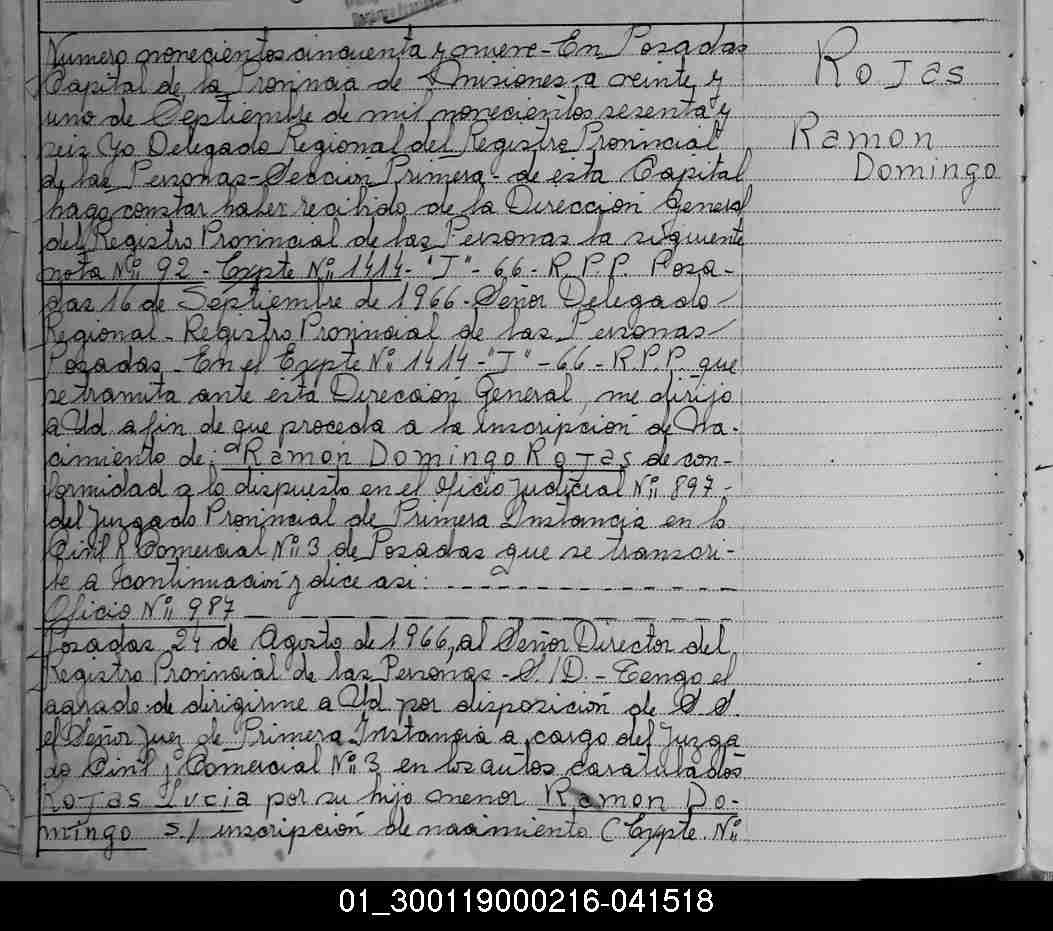 Numero novecientos cincuenta y nueve - En Posadas
Rojas
Capital de la Provincia de Misiones a veinte y
uno de Septiembre de mil novecientos sesenta y
Ramon
Domingo
seis Yo Delegado Regional del Registro Provincial
de las Personas - Sección Primera - de esta Capital
hago constar haber recibido de la Dirección General
del Registro Provincial de las Personas la siguiente
nota Nº 92 - Expte Nº 1414 - "J" - 66 - R.P.P. Posa-
das 16 de Septiembre de 1966 - Señor Delegado
Regional - Registro Provincial de las Personas
Posadas - En el Expte Nº 1414 - "J" - 66 - R.P.P. que
se tramita ante esta Dirección General, me dirijo
a Ud a fin de que proceda a la inscripción de Na-
cimiento de: Ramon Domingo Rojas de con-
formidad a lo dispuesto en el Oficio Judicial Nº 897 -
del Juzgado Provincial de Primera Instancia en lo
Civil y Comercial Nº 3 de Posadas que se transcri-
be a continuación y dice asi: - - - - - - - - - -
Oficio Nº 987 - - - - - - - - - - - - - - -
Posadas 24 de Agosto de 1966, al Señor Director del
Registro Provincial de las Personas - S./D. - Tengo el
agrado de dirigirme a Ud por disposición de S S.
el Señor Juez de Primera Instancia a cargo del Juzga
do Civil y Comercial Nº 3 en los autos caratulados
Rojas Lucia por su hijo menor Ramon Do-
mingo s./ inscripción de nacimiento (Expte Nº
01_300119000216-041518